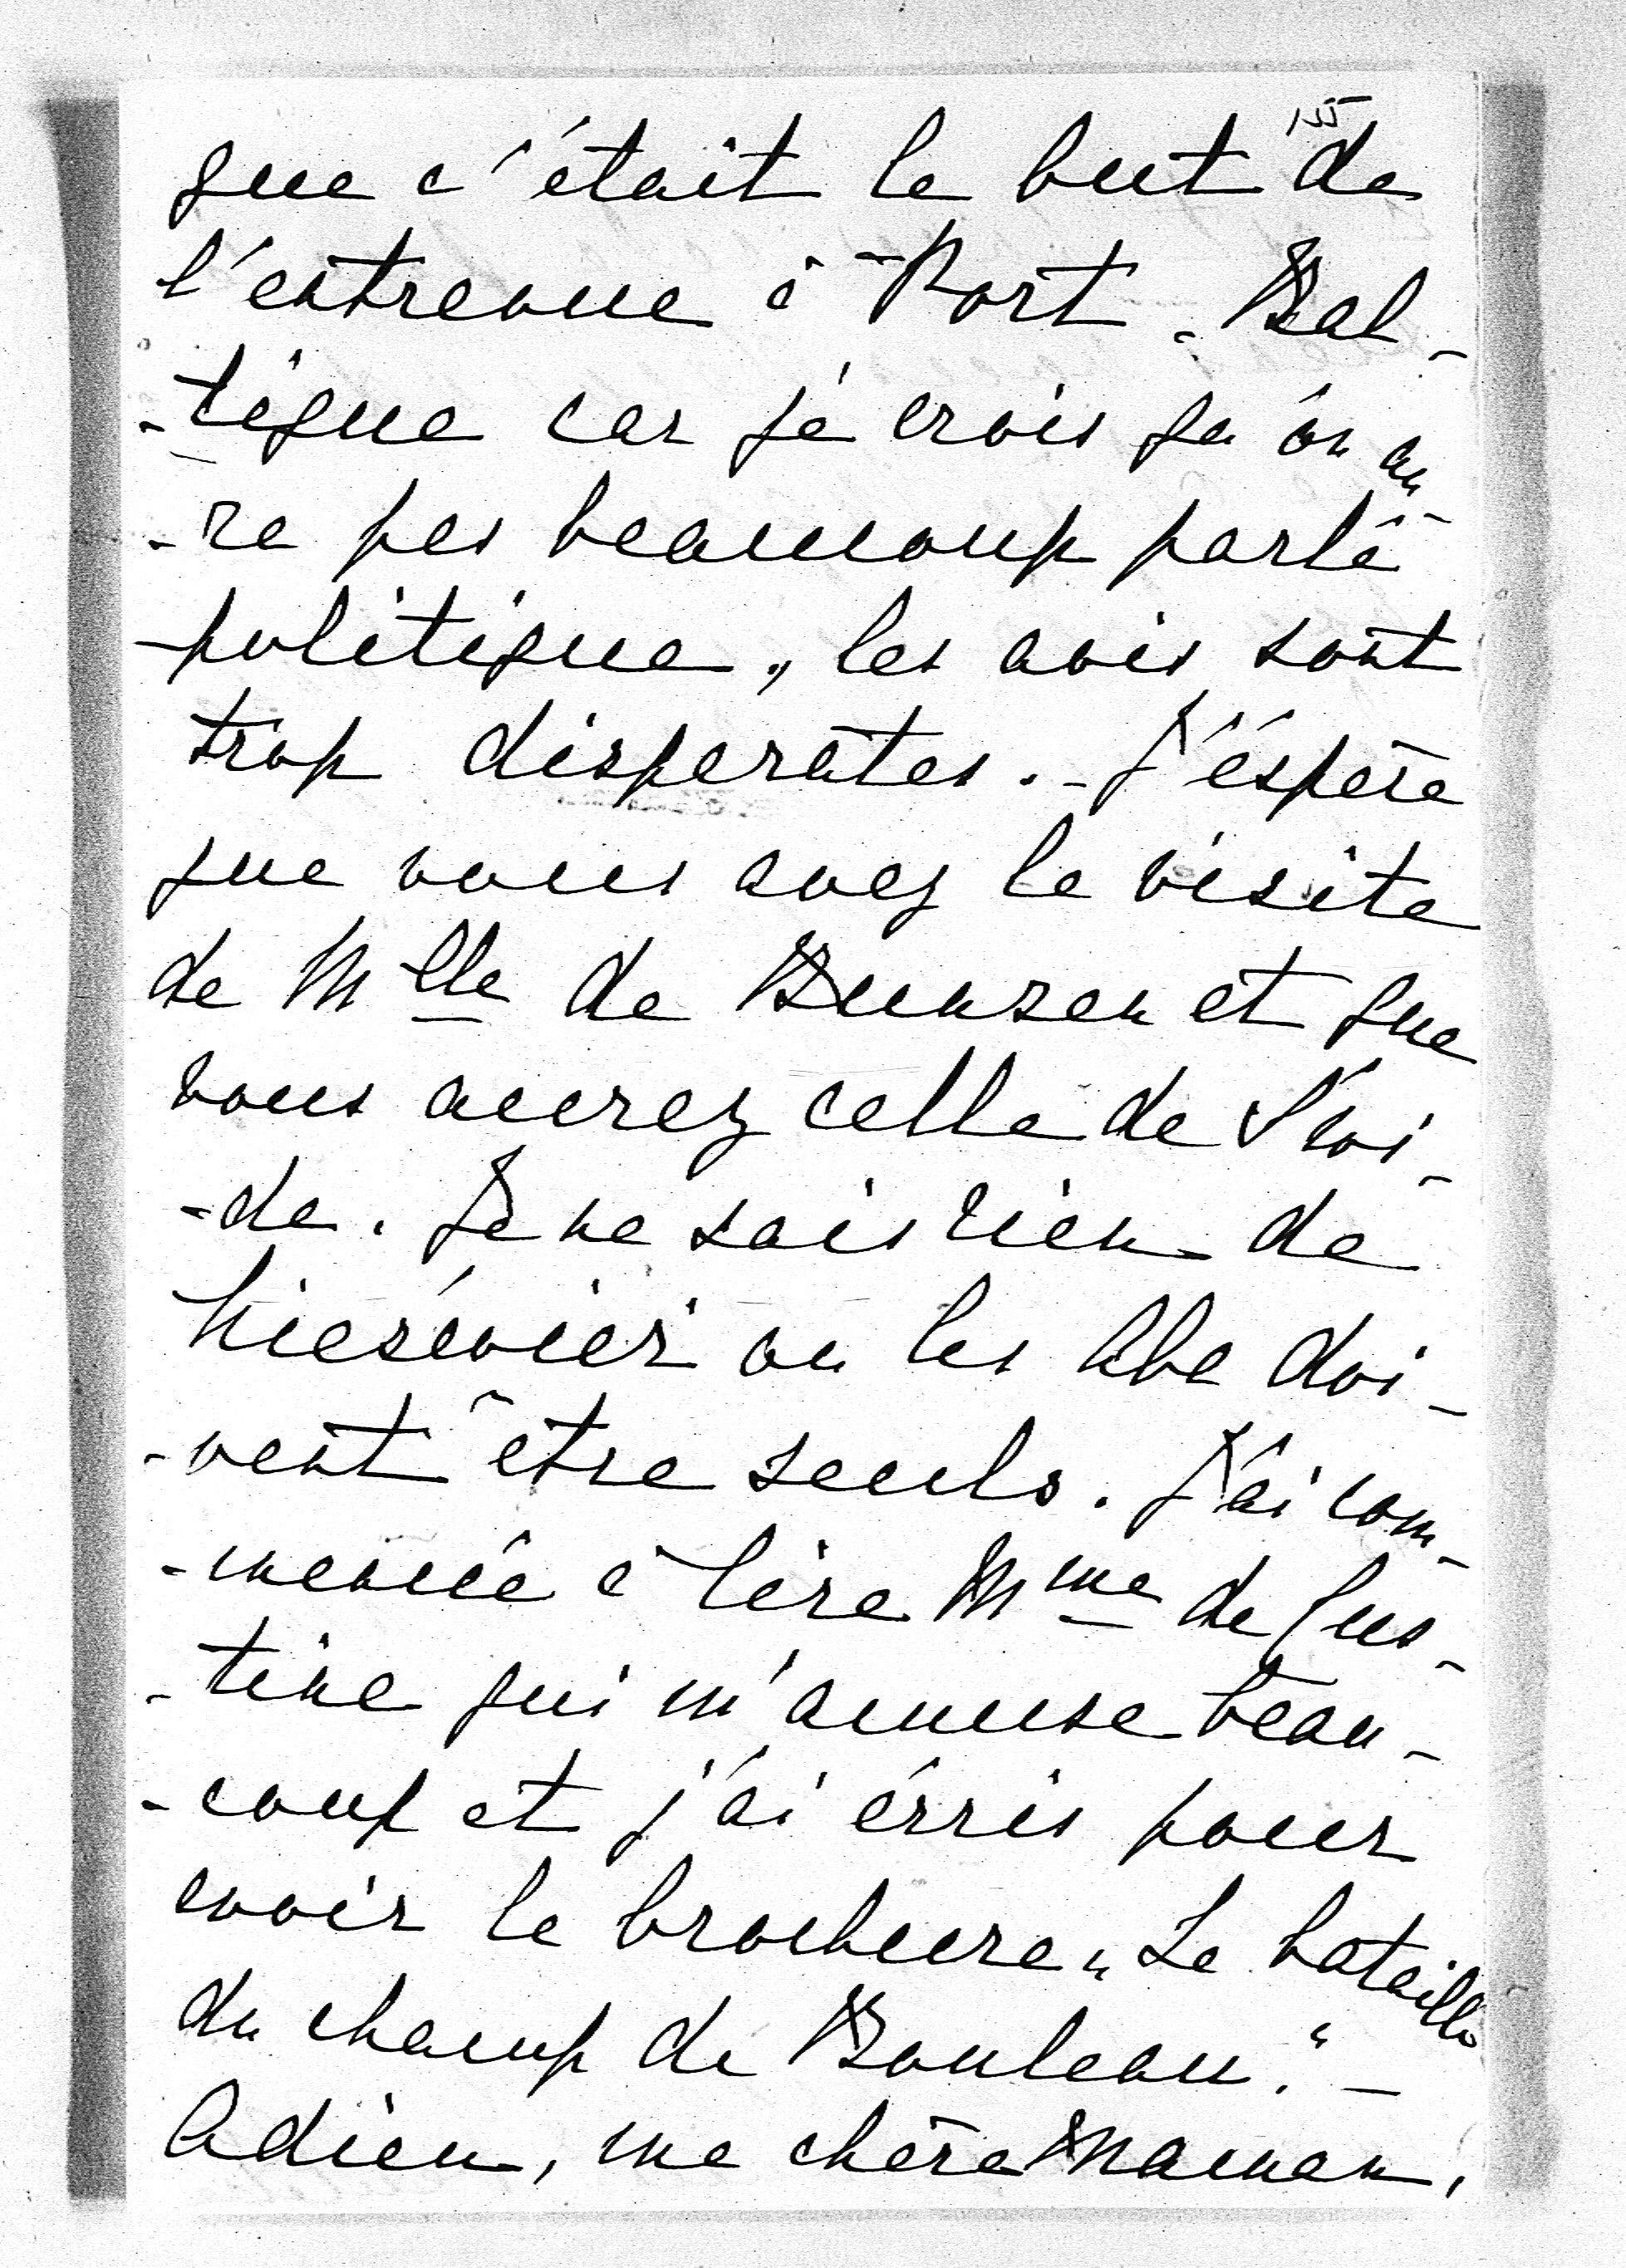 155
que c'était le but de
l'entrevue à Port-Bal-
-tique car je crois qu'on au-
-ra pas beaucoup parlé
politique, les avis sont
trop disparates. - J'éspère
que vous avez la visite
de Mlle de Bunsen et que
vous aurez celle de
-de. Je ne sais rien de
où les Abe doi-
-vent être seuls. J'ai com-
-mencée à lire Mme de Cus-
-tine qui m'amuse beau-
-coup et j'ai écris pour
avoir la brochure „La bataille
du champ de Bouleau." -
Adieu, ma chère Maman,